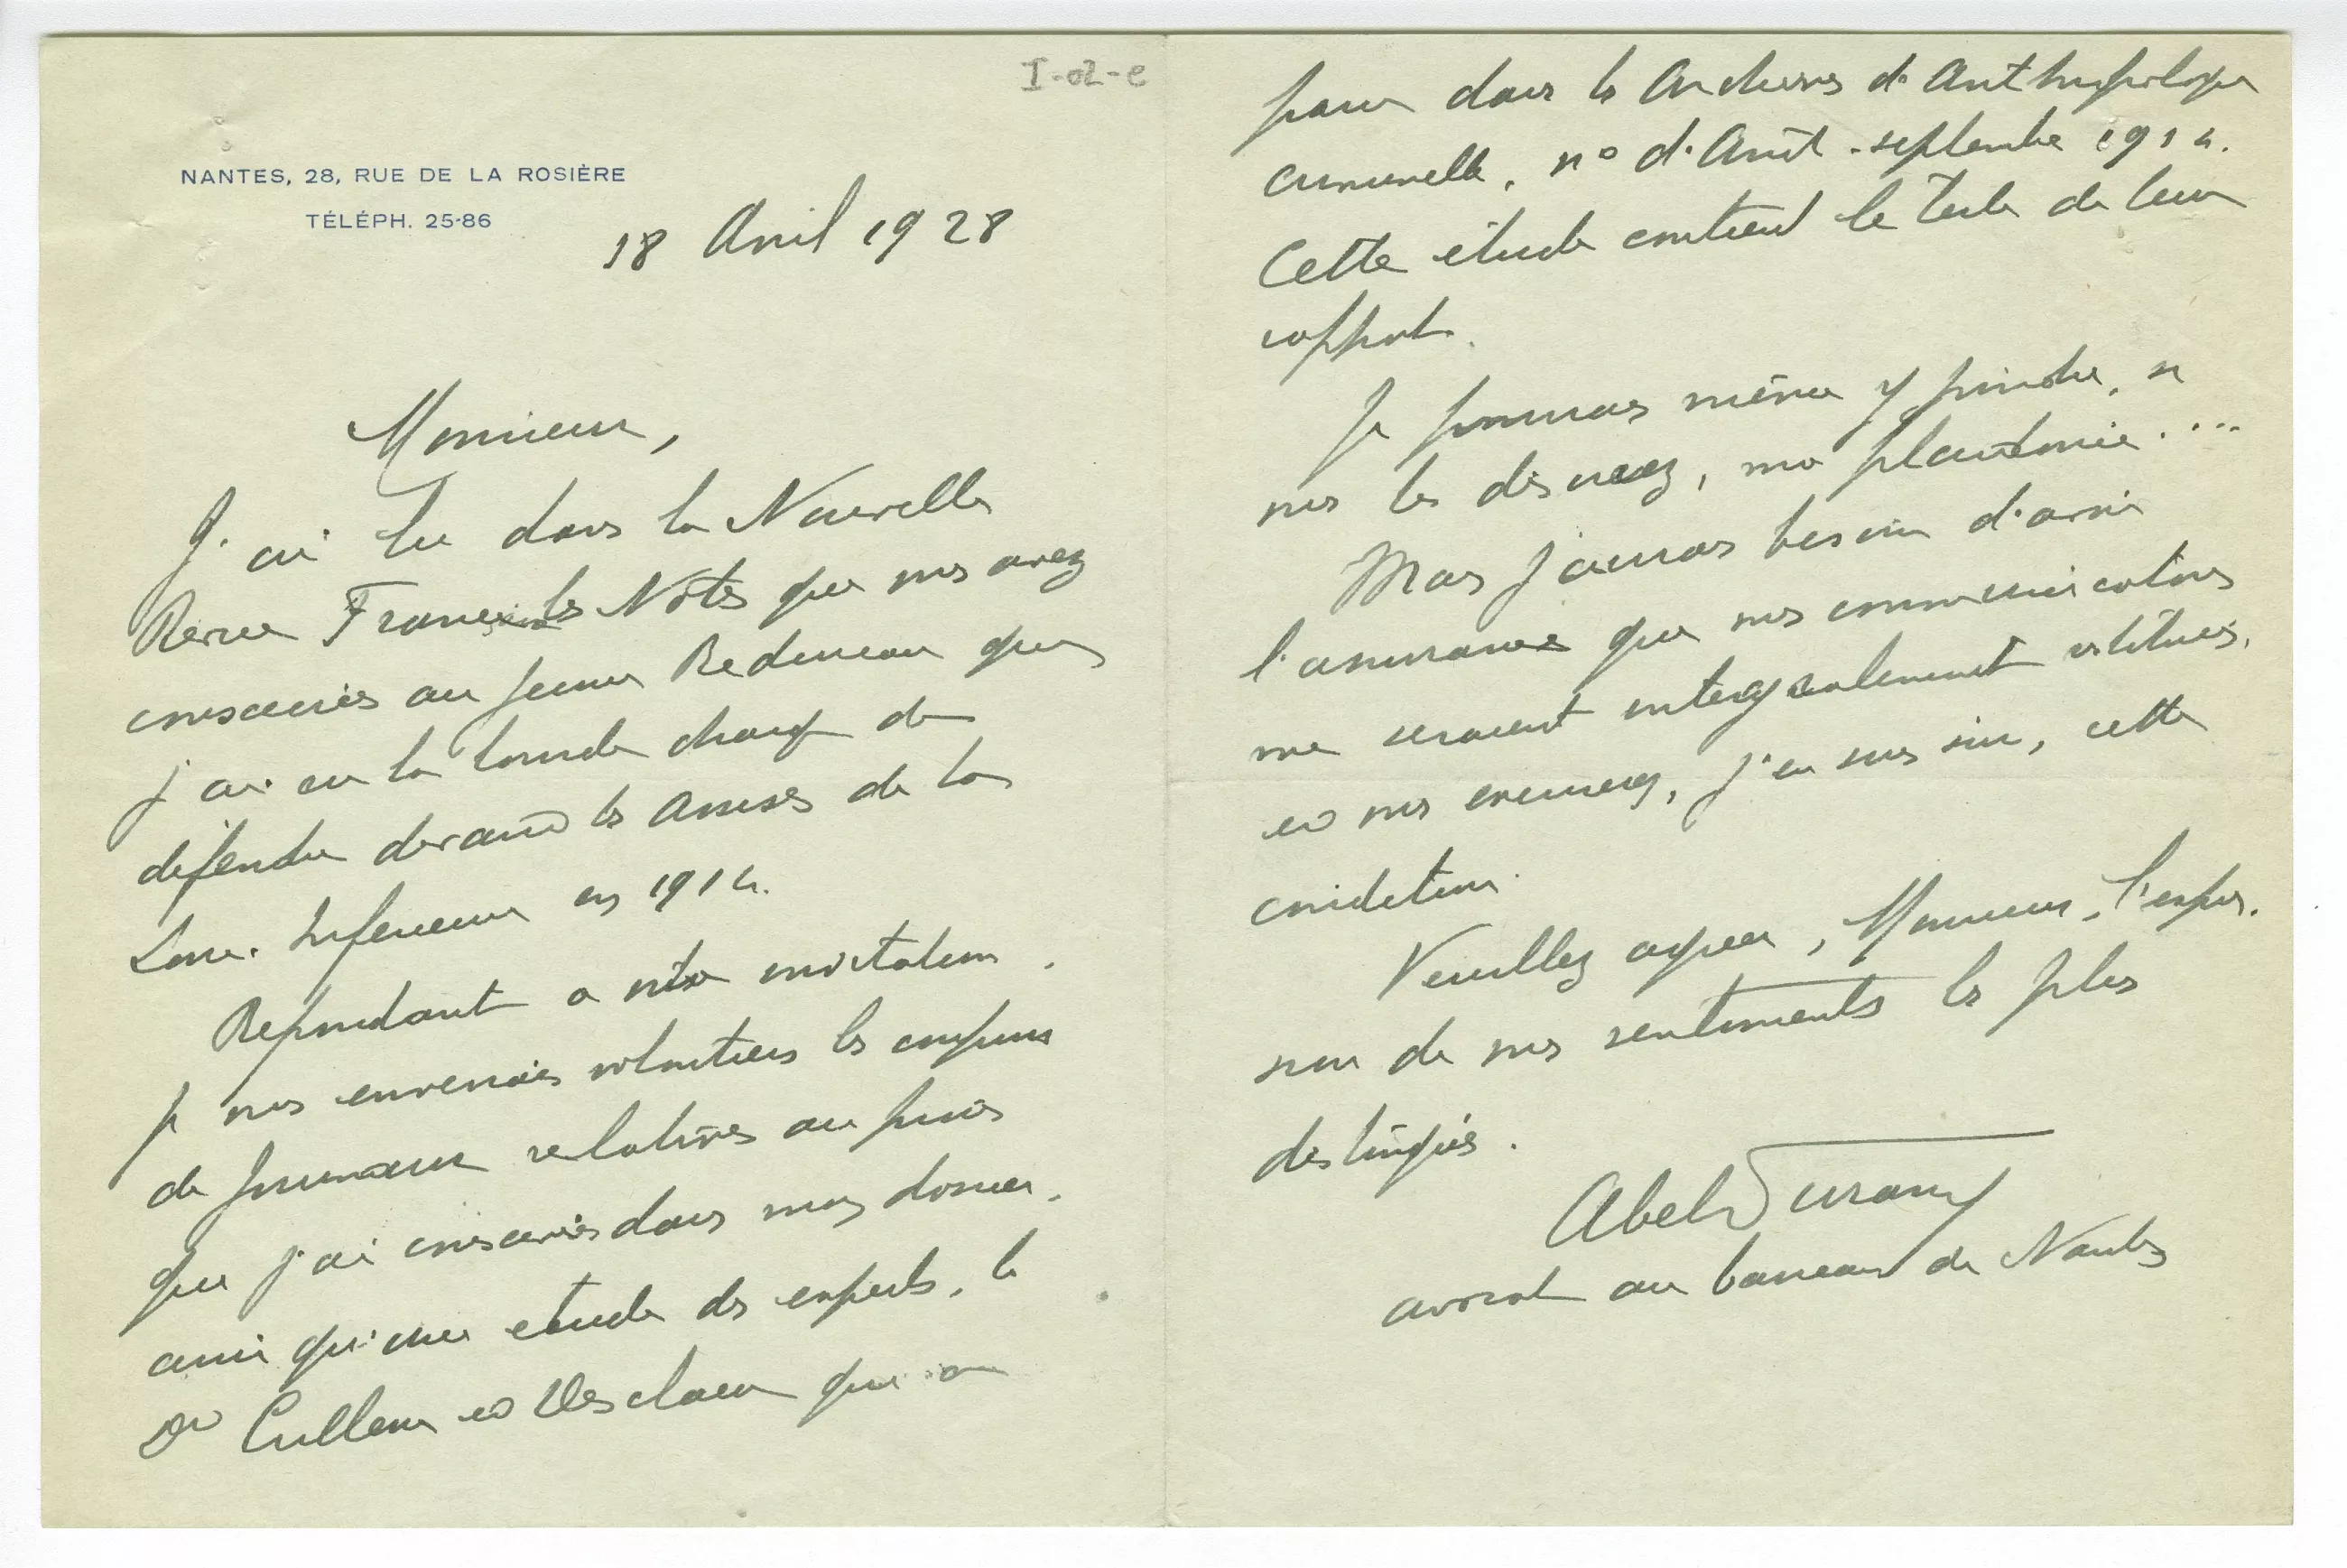 I-02-e
NANTES, 28, RUE DE LA ROSIÈRE
TÉLÉPH. 25-86
18 Avril 1928
Monsieur,
J'ai lu dans la Nouvelle
Revue Française les Notes que vous avez
consacrées au jeune Redureau que
j'ai eu la lourde charge de
défendre devant les Assises de la
Loire-Inférieure en 1914.
Répondant à votre invitation,
je vous enverrais volontiers les coupures
de journaux relatives au procès
que j'ai conservées dans mon dossier,
ainsi qu'une étude des experts, les
Drs Cullerre et Desclaux qui a
paru dans les Archives d'Anthropologie
criminelle, n° d'Août-septembre 1914.
Cette étude contient le texte de leur
rapport.
Je pourrais même y joindre, si
vous le désirez, ma plaidoirie....
Mais j'aurais besoin d'avoir
l'assurance que ces communications
me seraient intégralement restituées,
et vous excuserez, j'en suis sûr, cette
condition.
Veuillez agréer, Monsieur, l'expres-
sion de mes sentiments les plus
distingués.
Abel Durand
avocat au barreau de Nantes